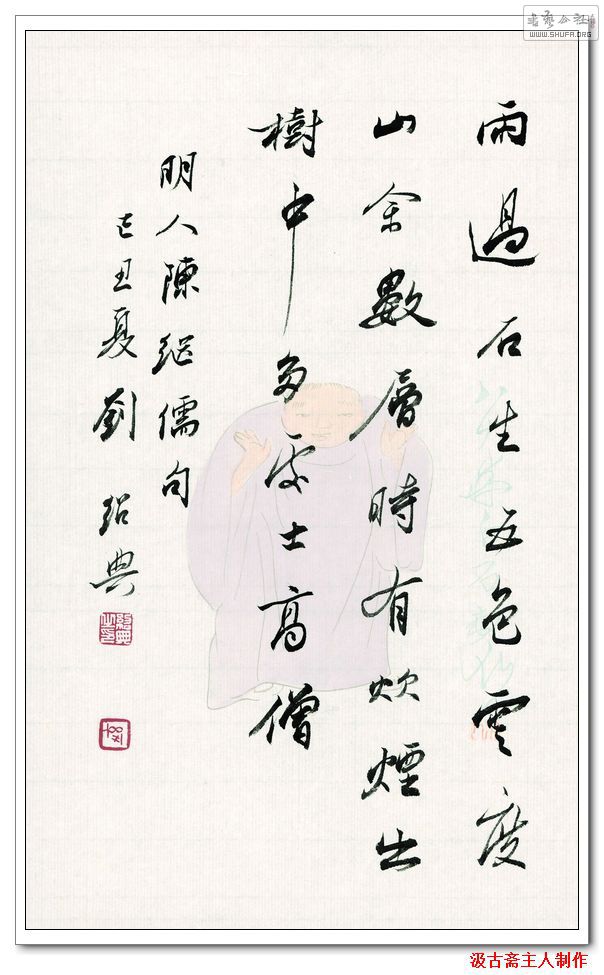 書藝公社
WWW.SHUFA.ORG
雨過石生五色雲度
山余數層時有炊煙出
樹中多處士高僧
明人陳継儒句
己丑夏劉紹典
汲古斋主人制作